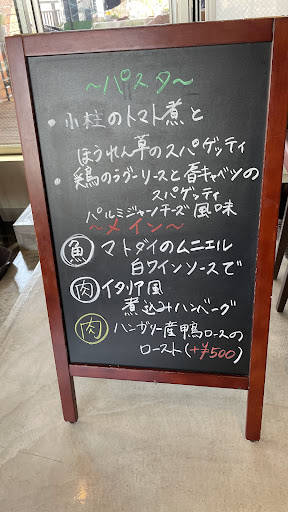 ～パスタ～
・小柱のトマト煮と
ほうれん草のスパゲッティ
・鶏のラグーソースと春キャベツの
スパゲッティ
パルミジャーノチーズ風味
～メイン～
魚 マトダイのムニエル
白ワインソースで
肉 イタリア風
煮込みハンバーグ
肉 ハンガリー産鴨ロースの
ロースト(+¥500)